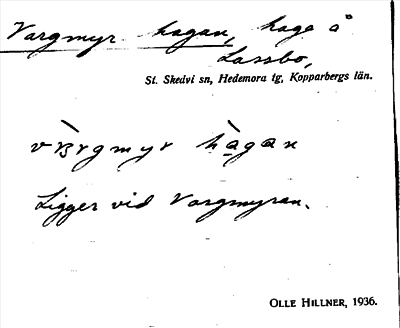 Vargmyr hagan, hage å
Lassbo,
St. Skedvi sn, Hedemora tg, Kopparbergs län.
hàgan
Ligger vid Vargmyran.
OLLE HILLNER, 1936.